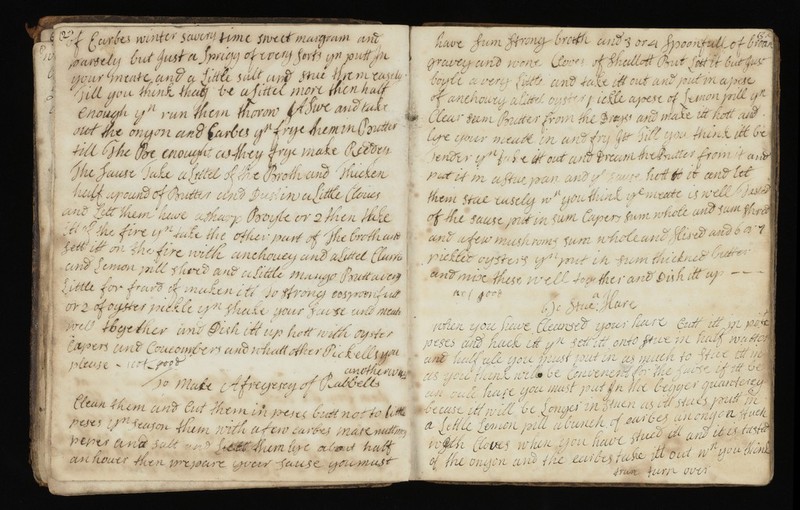 of Earbes winter savery time sweet margram and
parsely but Just a Sprigg of every sorts yn putt In
your meate, and a Little salt and stue them easely
till you think thay be a Littel more then half
enough yn run them thorow A Sive and take
out the onyon and Earbes yn frye them in Butter
till The Be enought as they frye make Reedey
The Sause Take a Littel of the Broth and thicken
half a pound of Butter and a Little Cloves
and Lett them have a sharp Boyle or 2 then take
itt of the fire yn take the other part of The broth and
sett itt on the fire with anchovey and a Littel Clarrit
and Lemon pill shred and a Little mango Butt a very
Little for fear of maken itt to strong
or 2 of oyster pickle yn shake your sause and meate
well together and Dish itt up hott with oyster
Capers and Coucombers and whatt other Pickells you
please - not good
another way
To make A fregeysey of Rabbetts
Clean them and Cut them in peses butt not to Little
peses yn season them with a few earbes mase nuttmeg
peper and salt and Lett them Lye about half
an houer then prepare your sause you must
have sum strong broth and 3 or 4 spoonfull of
gravey and wone Cloves of Shallott Butt Lett it but Just
boyle a very Little and take itt out and put in a pese
of anchovey a Littel oyster pickle a pese of Lemon pill yn
Clear sum Butter from the Dregs and make itt hott and
Lye your meate in and fry itt till you think itt be
tender yn take itt out and Dreain the Butter from it and
put it in a stue pan and ye sause hott to it and let
them stue easely wn you think ye meate is well
of the sause put in sum Capers sum whole and sum shred
and a few mushroms sum whole and slised and 6 or 7
pickled oysters yn put in sum thickned butter
and mix these well together and Dish itt up
not good
To Stue A Hare
when you have Cleansed your hare Cutt itt in
peses and yn sett itt onto stue in half watter
and half ale you must put in as much to stue itt in
as you think will be Convenent for the sause if itt be
an oule hare you must put in the bigger quanterey
becase itt will be Longer in stuen as itt stues putt in
a Little Lemon pill a bunch of earbes an onyon stuck
with Cloves when you have stued itt and it
of the onyon and the earbes take itt out wn you think
turn over